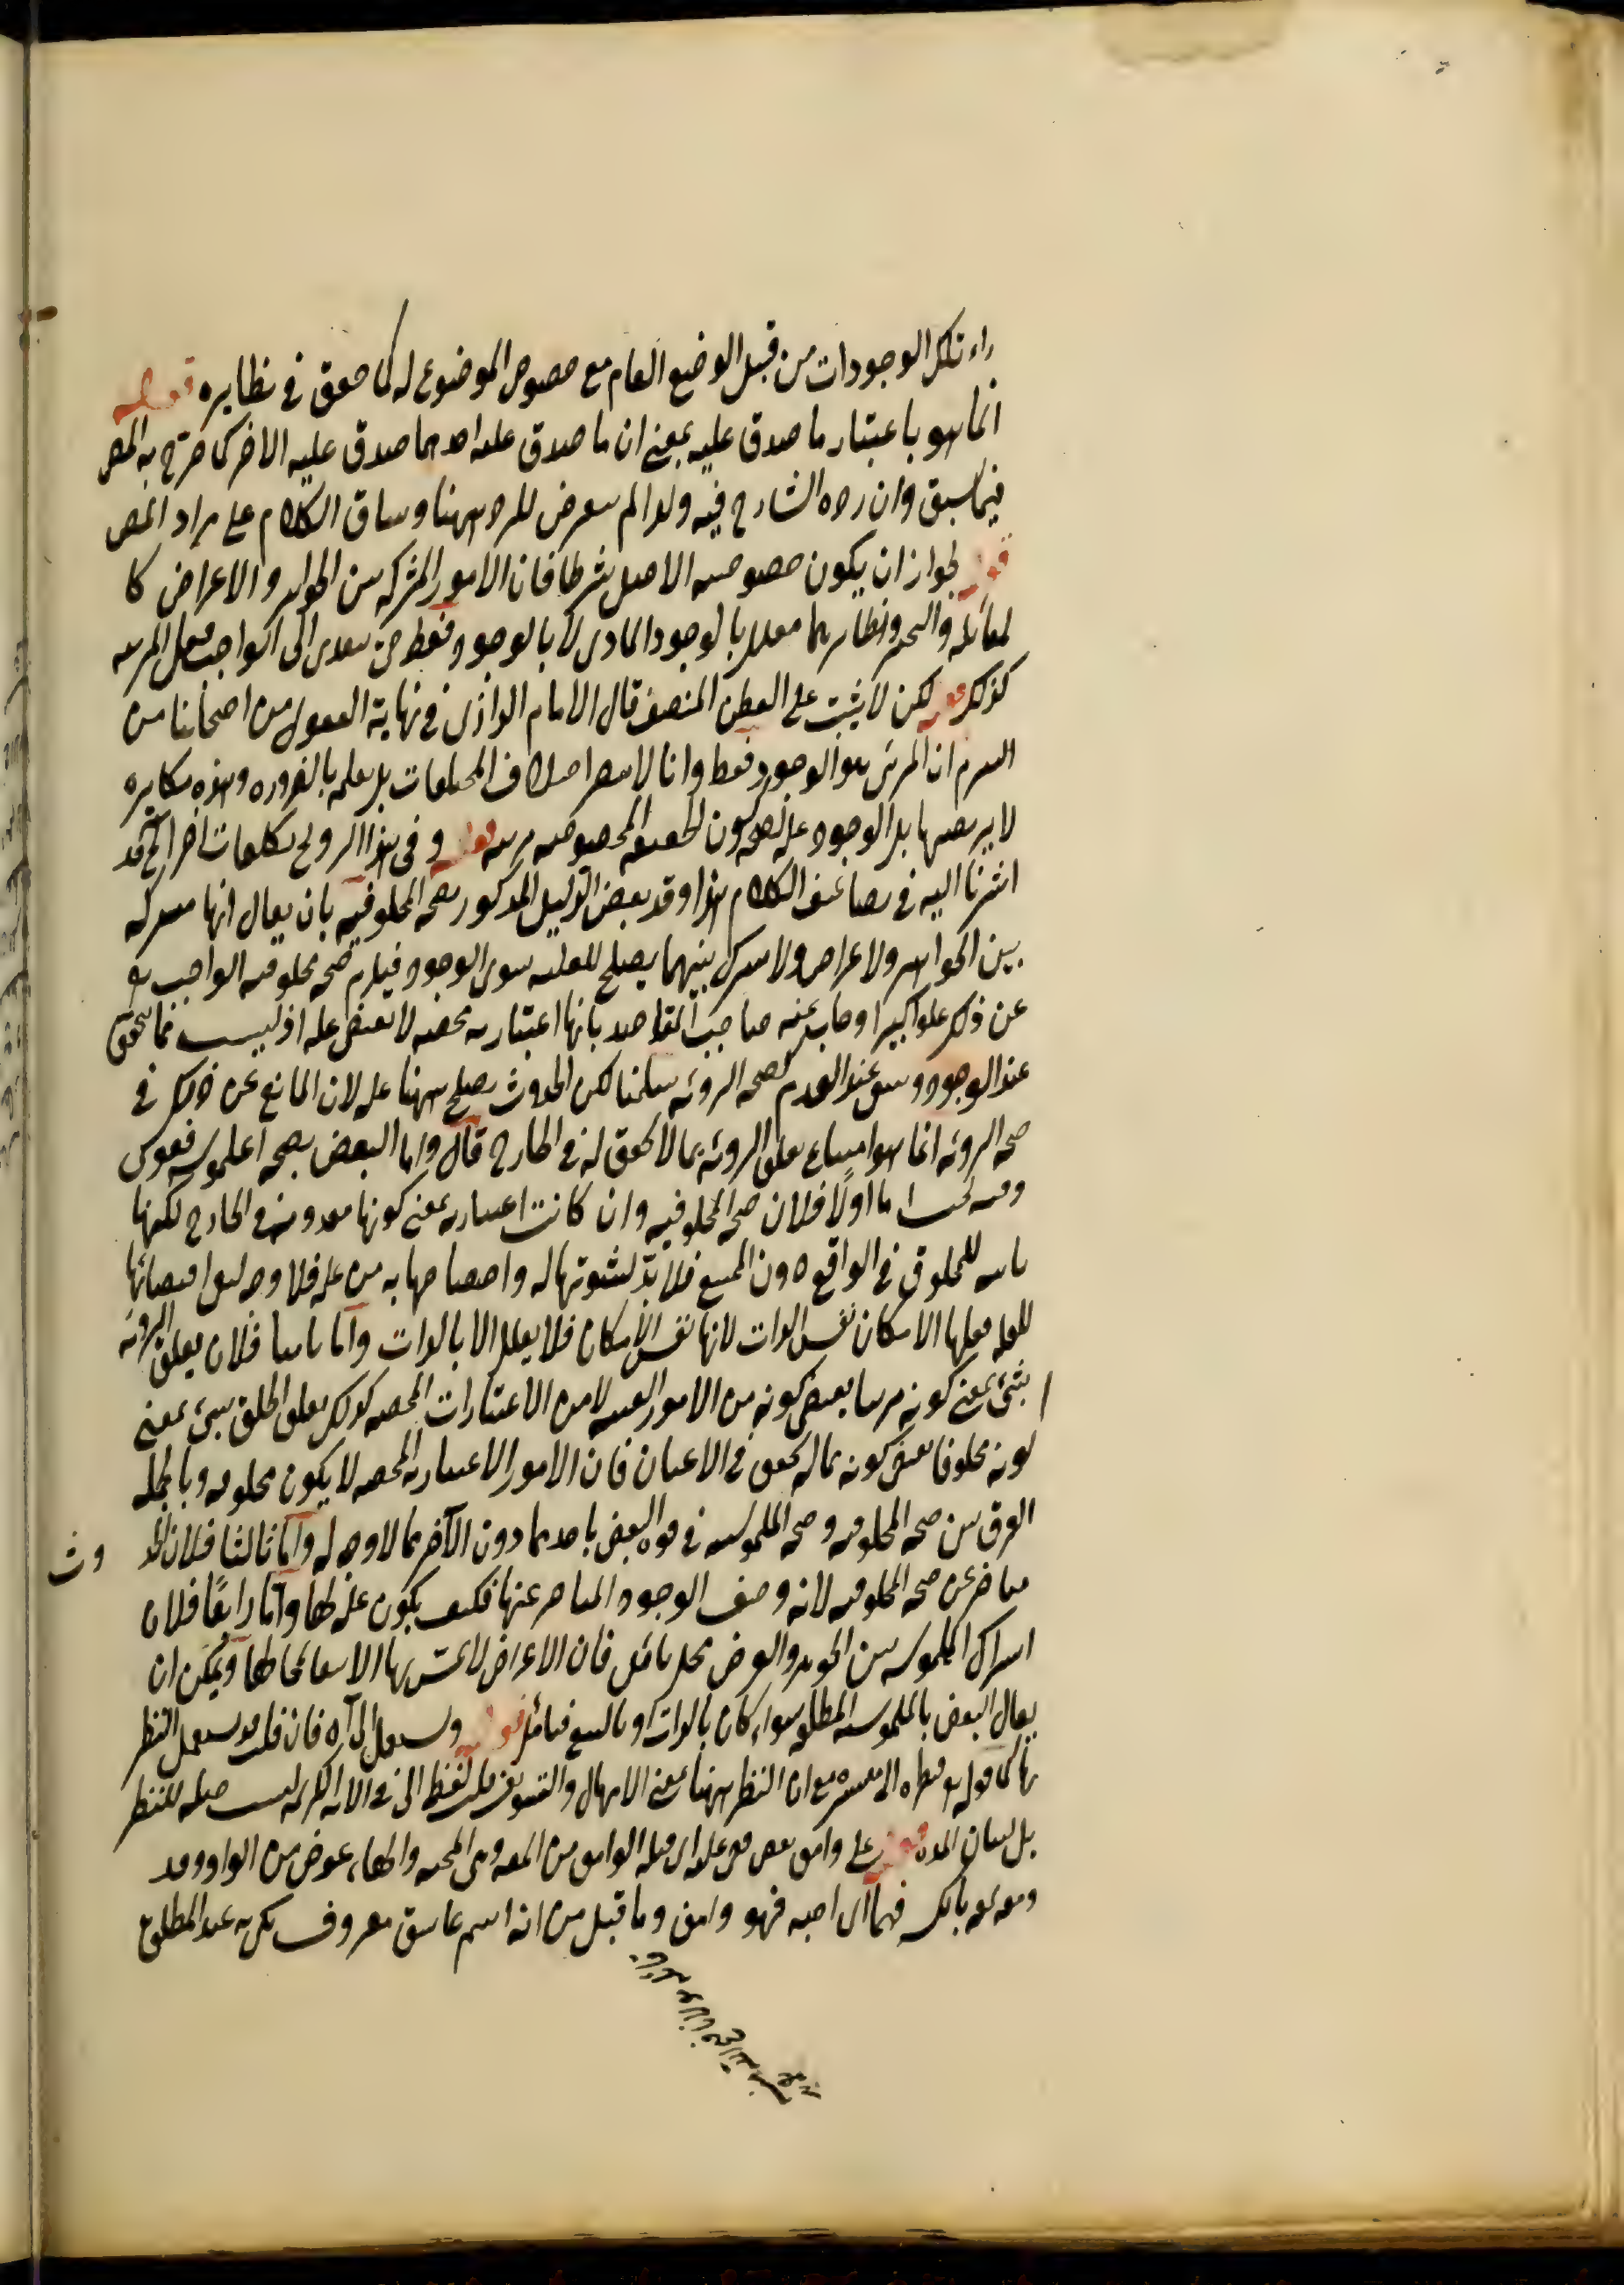 راء تلك الوجودات من قبل الوضع العام مع خصوص الموضوع له كما حقق في نظايره قوله
انما هو باعتبار ما صدق عليه بمعنى ان ما صدق عليه احدهما صدق عليه الاخر كما صرح به المص
فيما سبق وان رده الشارح فيه ولذا لم يتعرض للرد ههنا وساق الكلام على مراد المص
قوله لجواز ان يكون خصوصية الاصل شرطا فان الامور المشتركة بين الجواهر والاعراض كا
لمقابلة والتحيز ونظايرهما معلل بالوجود المادي لا بالوجود فقط حتى يتعدى الى الواجب فعل المرئية
كذلك قوله لكن لا يثبت على الفطن المنصف قال الامام الرازي في نهاية العقول من اصحابنا من
التزم ان المرئي هو الوجود فقط وانا لا نبصر اختلاف المختلفات بل نعلمه بالضرورة وهذه مكابرة
لا نرتضيها بل الوجود علة لصحة كون الحقيقة المخصوصة مرئية قوله وفي هذا الترويج تكلفات اخر الخ قد
اشرنا اليه في تضاعيف الكلام هذا وقد نقض الدليل المذكور بصحة المخلوقية بان يقال انها مشتركة
بين الجواهر والاعراض ولا مشترك بينهما يصلح للعلية سوى الوجود فيلزم صحة مخلوقية الواجب تعالى
عن ذلك علوا كبيرا واجاب عنه صاحب المقاصد بانها اعتبارية محضة لا يقتضي علة اذ ليست مما يتحقق
عند الوجود وينتفي عند العدم كصحة الرؤية سلمنا لكن الحدوث يصلح ههنا علة لان المانع عن ذلك في
صحة الرؤية انما هو امتناع تعلق الرؤية بما لا تحقق له في الخارج قال واما النقض بصحة الملموسية فقوي
وفيه بحث اما اولا فلان صحة المخلوقية وان كانت اعتبارية بمعنى كونها معدومة في الخارج لكنها
ثابتة للمخلوق في الواقع دون الممتنع فلا بد لثبوتها له واختصاصها به من علة فلا وجه لنفي اقتضائها
للعلة فعلها الامكان نفس الذات لانها نفس الامكان فلا يعلل الا بالذات واما ثانيا فلان تعلق الرؤية
بشيء بمعنى كونه مرئيا يقتضي كونه من الامور العينية لا من الاعتبارات المحضة كذلك تعلق الخلق بشيء بمعنى
كونه مخلوقا يقتضي كونه مما له تحقق في الاعيان فان الامور الاعتبارية المحضة لا يكون مخلوقة وبالجملة
الفرق بين صحة المخلوقية وصحة الملموسية في قوة النقض باحدهما دون الآخر مما لا وجه له واما ثالثا فلان الحد
وث
متاخر عن صحة المخلوقية لانه وصف الوجود المتاخر عنها فكيف يكون علة لها واما رابعا فلان
اشتراك الملموسية بين الجوهر والعرض محل تامل فان الاعراض لا تحس بها الا تبعا لمحالها ويمكن ان
يقال النقض بالملموسية المطلقة سواء كان بالذات او بالتبع فتامل قوله ويستعمل الى آه فان قلت قد يستعمل النظر
بها كما في قوله تعالى فنظرة الى ميسرة مع ان النظر ههنا بمعنى الامهال والتسويف قلت لفظ الى في الآية الكريمة ليست صلة للنظر
بل لبيان المدة قوله على وامق وامق من المقة وهي المحبة والهاء عوض من الواو وقد
ومقه يمقه بالكسر فيهما اي احبه فهو وامق وما قيل من انه اسم عاشق معروف يكن به عند المطلع